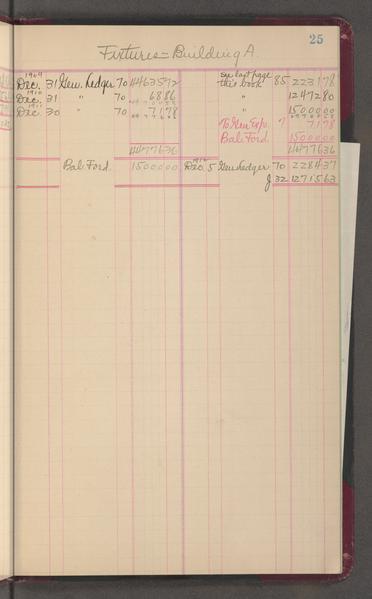 25
Fixtures - Building A.
1909 Dec. 31 Gen. Ledger 70 1446 35 72 see last page this book 85 2231 78
1910 Dec. 31 " 70 68 86 " 12472 80
1911 Dec. 30 " 70 71 78 " 15000 00
To Gen Exp. 71 78
Bal. Ford. 15000 00
14776 36 14776 36
Bal. Ford. 15000 00 1912 Dec. 5 Gen Ledger 70 2284 37
J 32 12715 63